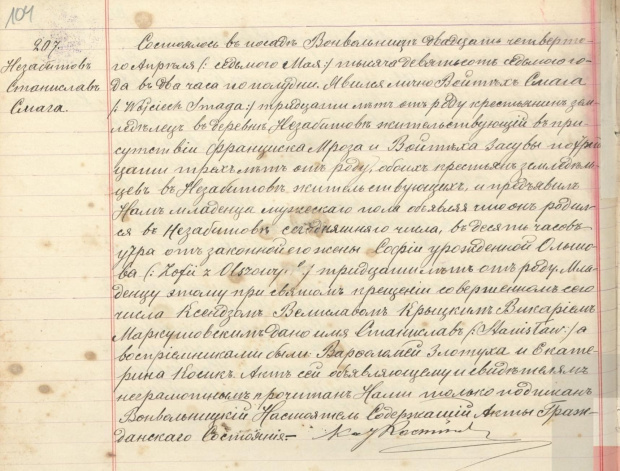 104
207.
Незабитовъ
Станиславъ
Смага.
Состоялось въ посадѣ Вонвольницѣ двадцать четверто-
го Апрѣля (: седьмого Мая:) тысяча девятьсотъ седьмого го-
да въ два часа по полудни. Явился лично Войтѣхъ Смага
(: Wojciech Smaga :) тридцати лѣтъ отъ роду крестьянинъ зем-
ледѣлецъ въ деревнѣ Незабитовѣ жительствующій въ при-
сутствіи Франциска Мроза и Войтѣха Засувы по трид-
цати трехъ лѣтъ отъ роду, обоихъ крестьянъ земледѣль-
цевъ въ Незабитовѣ жительствующихъ, и предъявилъ
Намъ младенца мужескаго пола объявляя что онъ родил-
ся въ Незабитовѣ сегодняшняго числа, въ десять часовъ
утра отъ законной его жены Софіи урожденной Ольшо-
ва (: Zofii z :) тридцати лѣтъ отъ роду. Мла-
денцу этому при святомъ крещеніи совершенномъ сего
числа Ксендзомъ Велиславомъ Крыцкимъ Викаріемъ
Маркушовскимъ дано имя Станиславъ (: Stanisław :) а
воспріемниками были Варфоломей Злотуха и Екате-
рина Косикъ. Актъ сей объявляющему и свидѣтелямъ
неграмотнымъ прочитанъ Нами только подписанъ
Вонвольницкій Настоятель Содержащій Акты Граж-
данскаго Состоянія.